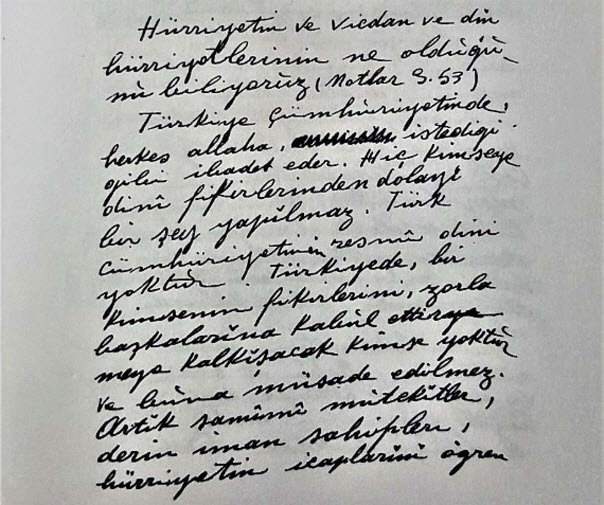 Hürriyetin ve vicdan ve din
hürriyetlerinin ne olduğu-
nu biliyoruz (Notlar S. 53)
Türkiye Cümhûriyetinde,
herkes allaha, istediği
gibi ibadet eder. Hiç kimseye
dinî fikirlerinden dolayı
bir şey yapılmaz. Türk
Cümhûriyetinin resmî dini
yoktur. Türkiyede, bir
kimsenin fikirlerini, zorla
başkalarına kabûl ettir
meye kalkışacak kimse yoktur
ve buna müsade edilmez.
Artık samimî mütekitler,
derin iman sahipleri,
hürriyetin icaplarını öğren